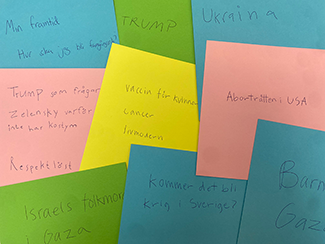 Min framtid
Hur ska jag bli
TRUMP
Ukraina
Trump som frågar
Zelensky varför
inte har kostym
Respektlöst
Vaccin för kvinnor
cancer
livmodern
Aborträtten i USA
Israels folkmord
i Gaza
kommer det bli
krig i Sverige?
Barn
Gaza